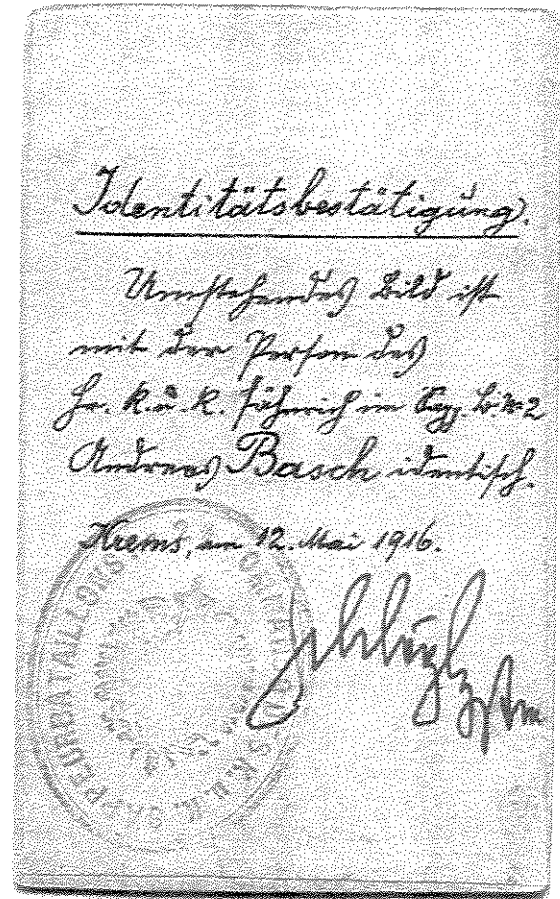 Identitätsbestätigung.
Umstehendes Bild ist
mit der Person des
Hr. k.u.k. Fähnrich im Sapp. b. Nr. 2
Andreas Basch identisch.
Krems, am 12. Mai 1916.
K.U.K. SAPPEURBATAILLONS